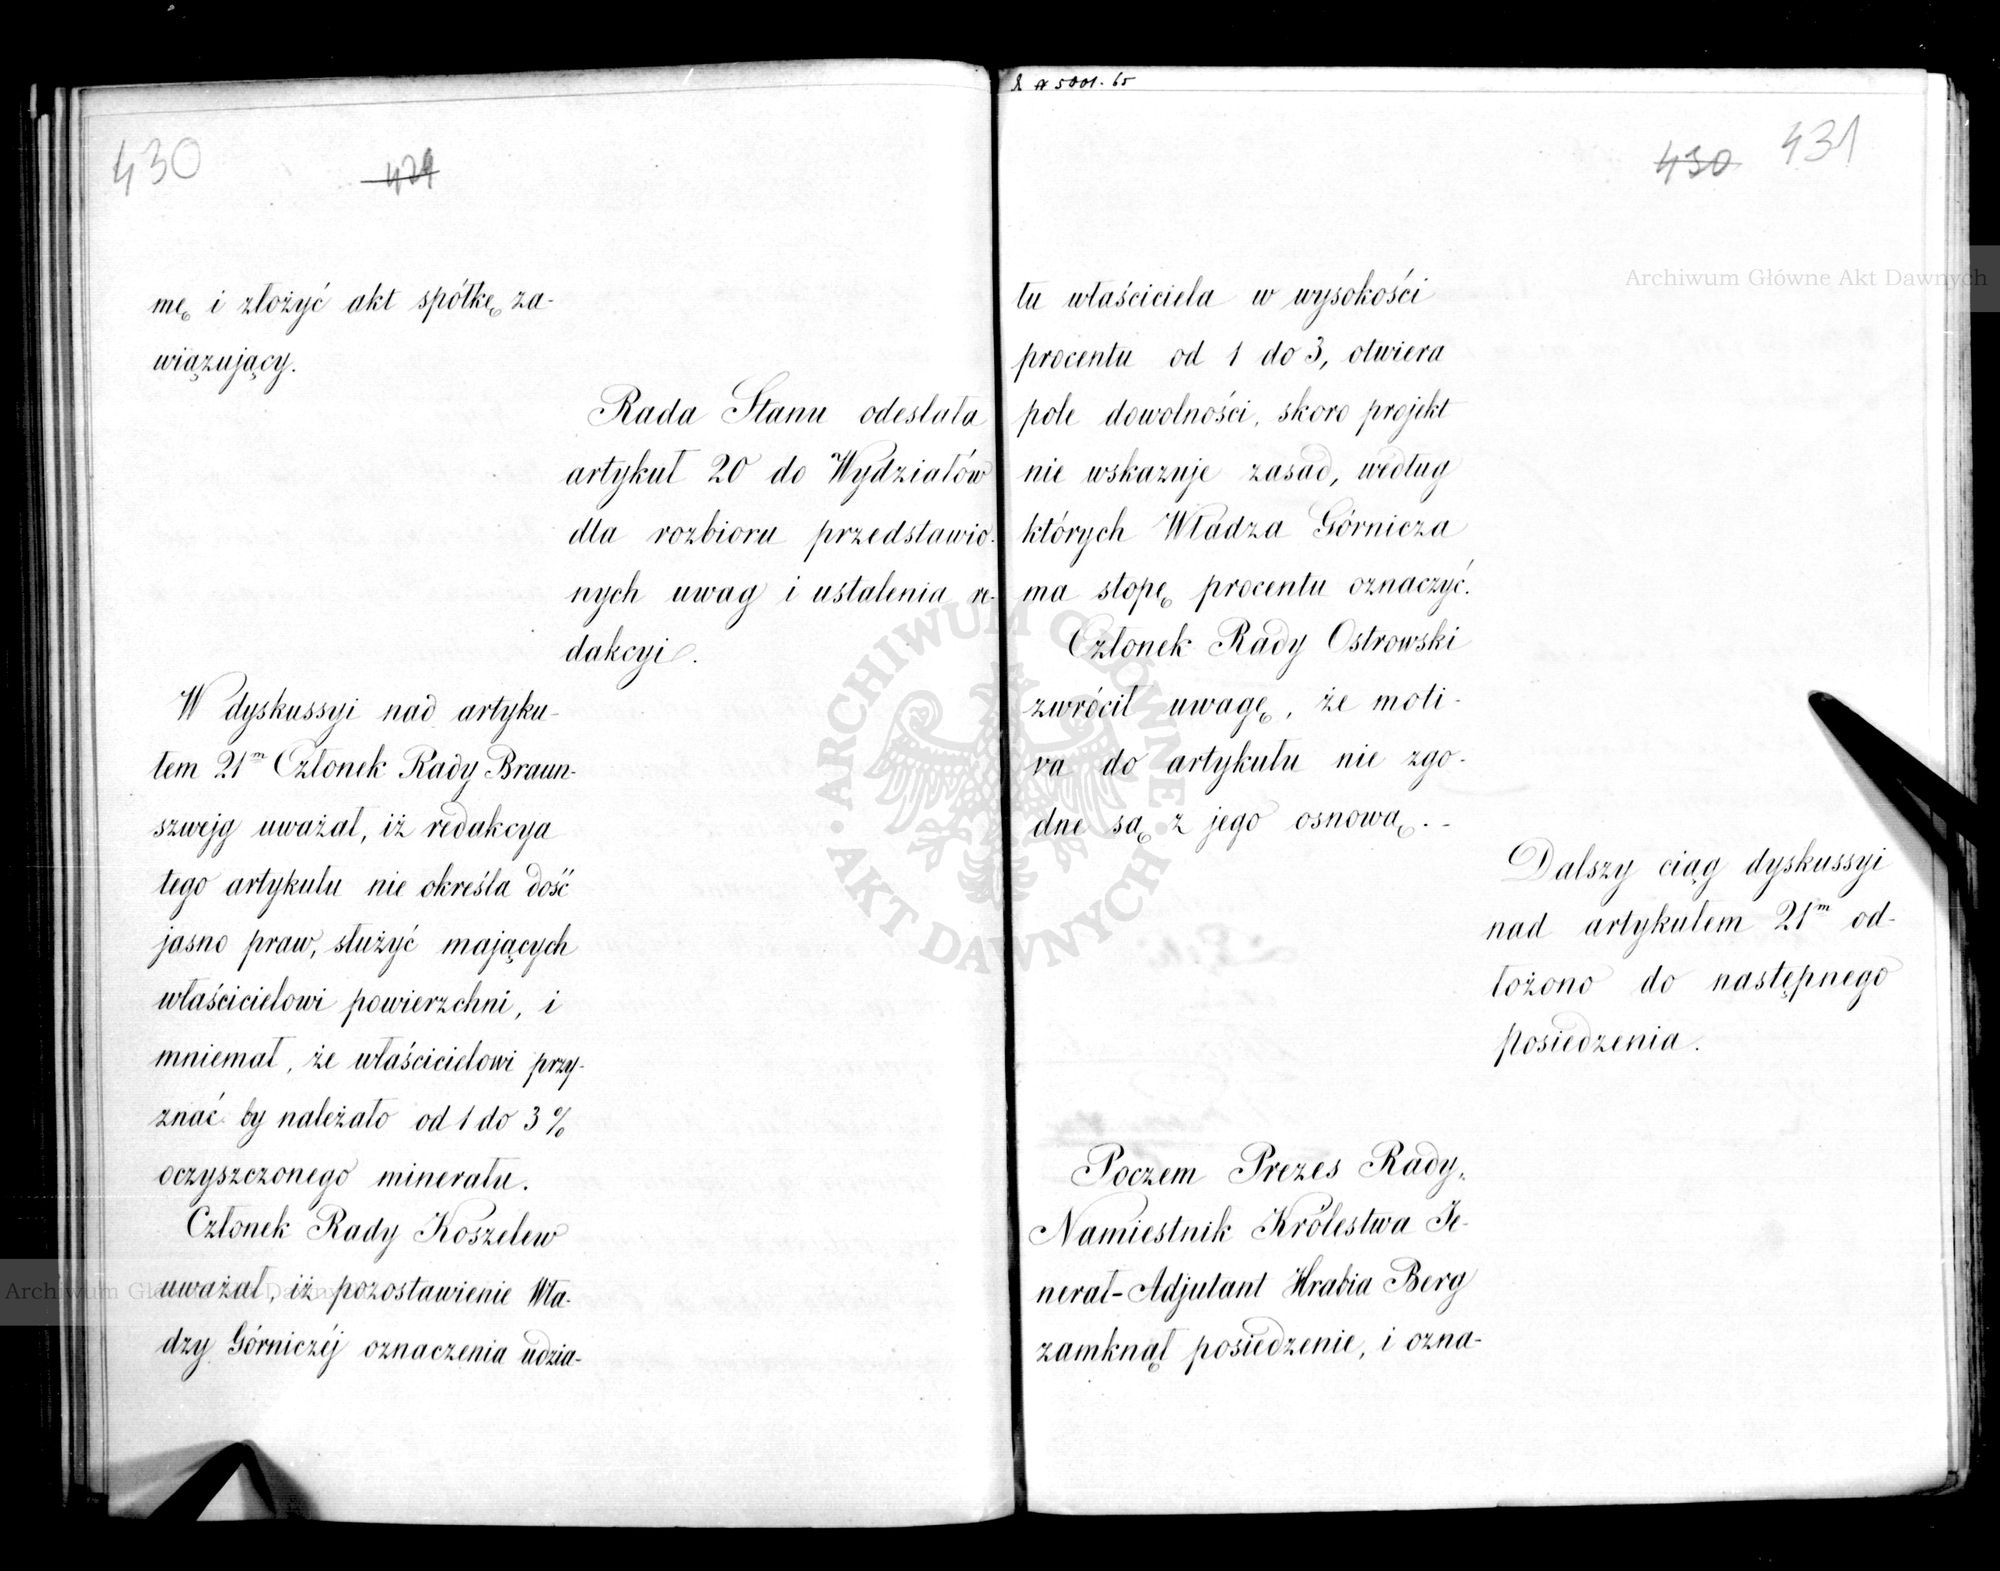 430
429
mę i złożyć akt spółkę za-
wiązujący.
Rada Stanu odesłała
artykuł 20 do Wydziałów
dla rozbioru przedstawio-
nych uwag i ustalenia re-
dakcyi.
W dyskussyi nad artyku-
łem 21m Członek Rady Braun-
szwejg uważał, iż redakcya
tego artykułu nie określa dość
jasno praw, służyć mających
właścicielowi powierzchni, i
mniemał, że właścicielowi przy-
znać by należało od 1 do 3%
oczyszczonego minerału.
Członek Rady Koszelew
uważał, iż pozostawienie Wła-
dzy Górniczéj oznaczenia udzia-
5001. 65
430 431
łu właściciela w wysokości
procentu od 1 do 3, otwiera
pole dowolności, skoro projekt
nie wskazuje zasad, według
których Władza Górnicza
ma stopę procentu oznaczyć.
Członek Rady Ostrowski
zwrócił uwagę, że moti-
va do artykułu nie zgo-
dne są z jego osnową. -
Dalszy ciąg dyskussyi
nad artykułem 21m od-
łożono do następnego
posiedzenia.
Poczem Prezes Rady,
Namiestnik Królestwa Je-
nerał-Adjutant Hrabia Berg
zamknął posiedzenie, i ozna-
Archiwum Główne Akt Dawnych
ARCHIWUM GŁÓWNE
AKT DAWNYCH
Archiwum Główne Akt Dawnych